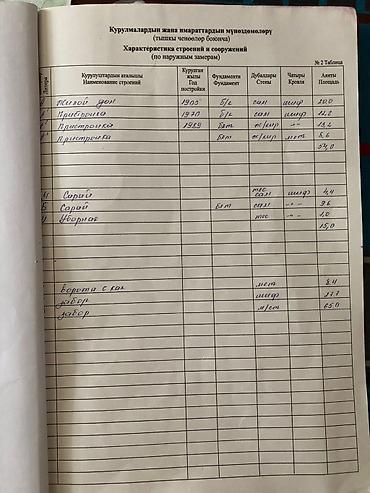 Курулмалардын жана имараттардын мүнөздөмөлөрү
(тышкы ченөөлөр боюнча)
Характеристика строений и сооружений
(по наружным замерам)
№ 2 Таблица
Литера Курулуштардын аталышы Наименование строений Курулган жылы Год постройки Фундаменти Фундамент Дубалдары Стены Чатыры Кровля Аянты Площадь
Жилой дом 1905 б/г сам шиф
Пристройка 1970 б/г сам шиф
Пристройка 1989 бет ж/кир -"-
Пристройка бет ж/кир мет
54,0
Сарай сам шиф 4,4
Сарай бет сам -"- 9,6
Уборная тес -"- 1,0
15,0
Ворота с кал мет 8,4
Забор шиф
Забор 65,0